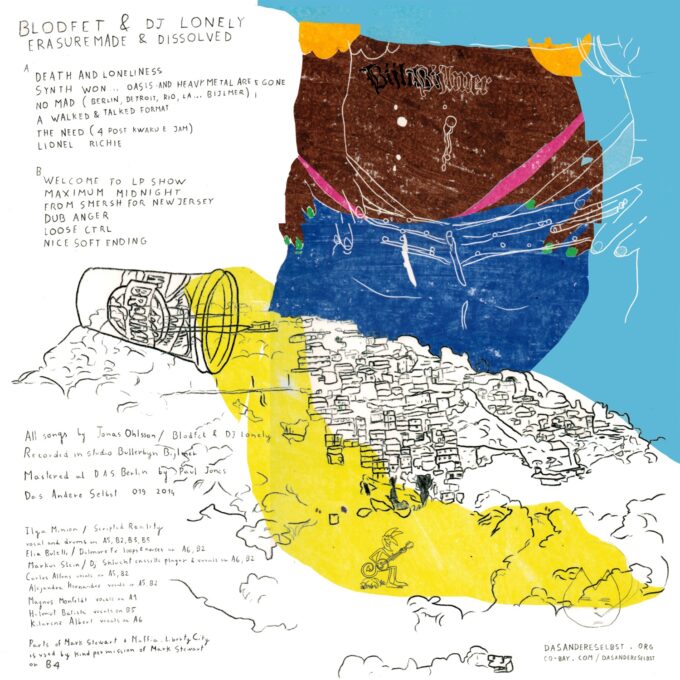 BLODFET & DJ LONELY
ERASUREMADE & DISSOLVED
A
DEATH AND LONELINESS
SYNTH WON .. OASIS AND HEAVY METAL ARE GONE
NO MAD (BERLIN, DETROIT, RIO, LA... BIJLMER),
A WALKED & TALKED FORMAT
THE NEED (4 POST KWAKU E JAM)
LIONEL RICHIE
B
WELCOME TO LP SHOW
MAXIMUM MIDNIGHT
FROM SMERSH FOR NEW JERSEY
DUB ANGER
LOOSE CTRL
NICE SOFT ENDING
Bijlmer
All songs by Jonas Ohlsson / Blodfet & DJ Lonely
Recorded in studio Bullerbyn Bijlmer
Mastered at DAS Berlin by Paul Jones
Das Andere Selbst 019 2014
Ilya Minion / Scripted Reality
vocal and drums on A5, B2, B3, B5
Elia / loops & noises on A6, B2
Markus Stein / Dj Schlucht cassette player & vocals on A6, B2
Carlos vocals on A5, B2
Alejandra Hernandez vocals on A5, B2
Magnus Monfeldt vocals on A4
Helmut Batista vocals on B5
Albert vocals on A6
Parts of Mark Stewart & Maffia Liberty City
is used by kind permission of Mark Stewart
on B4
DASANDERESELBST . ORG
CO-BAY . COM / DASANDERESELBST